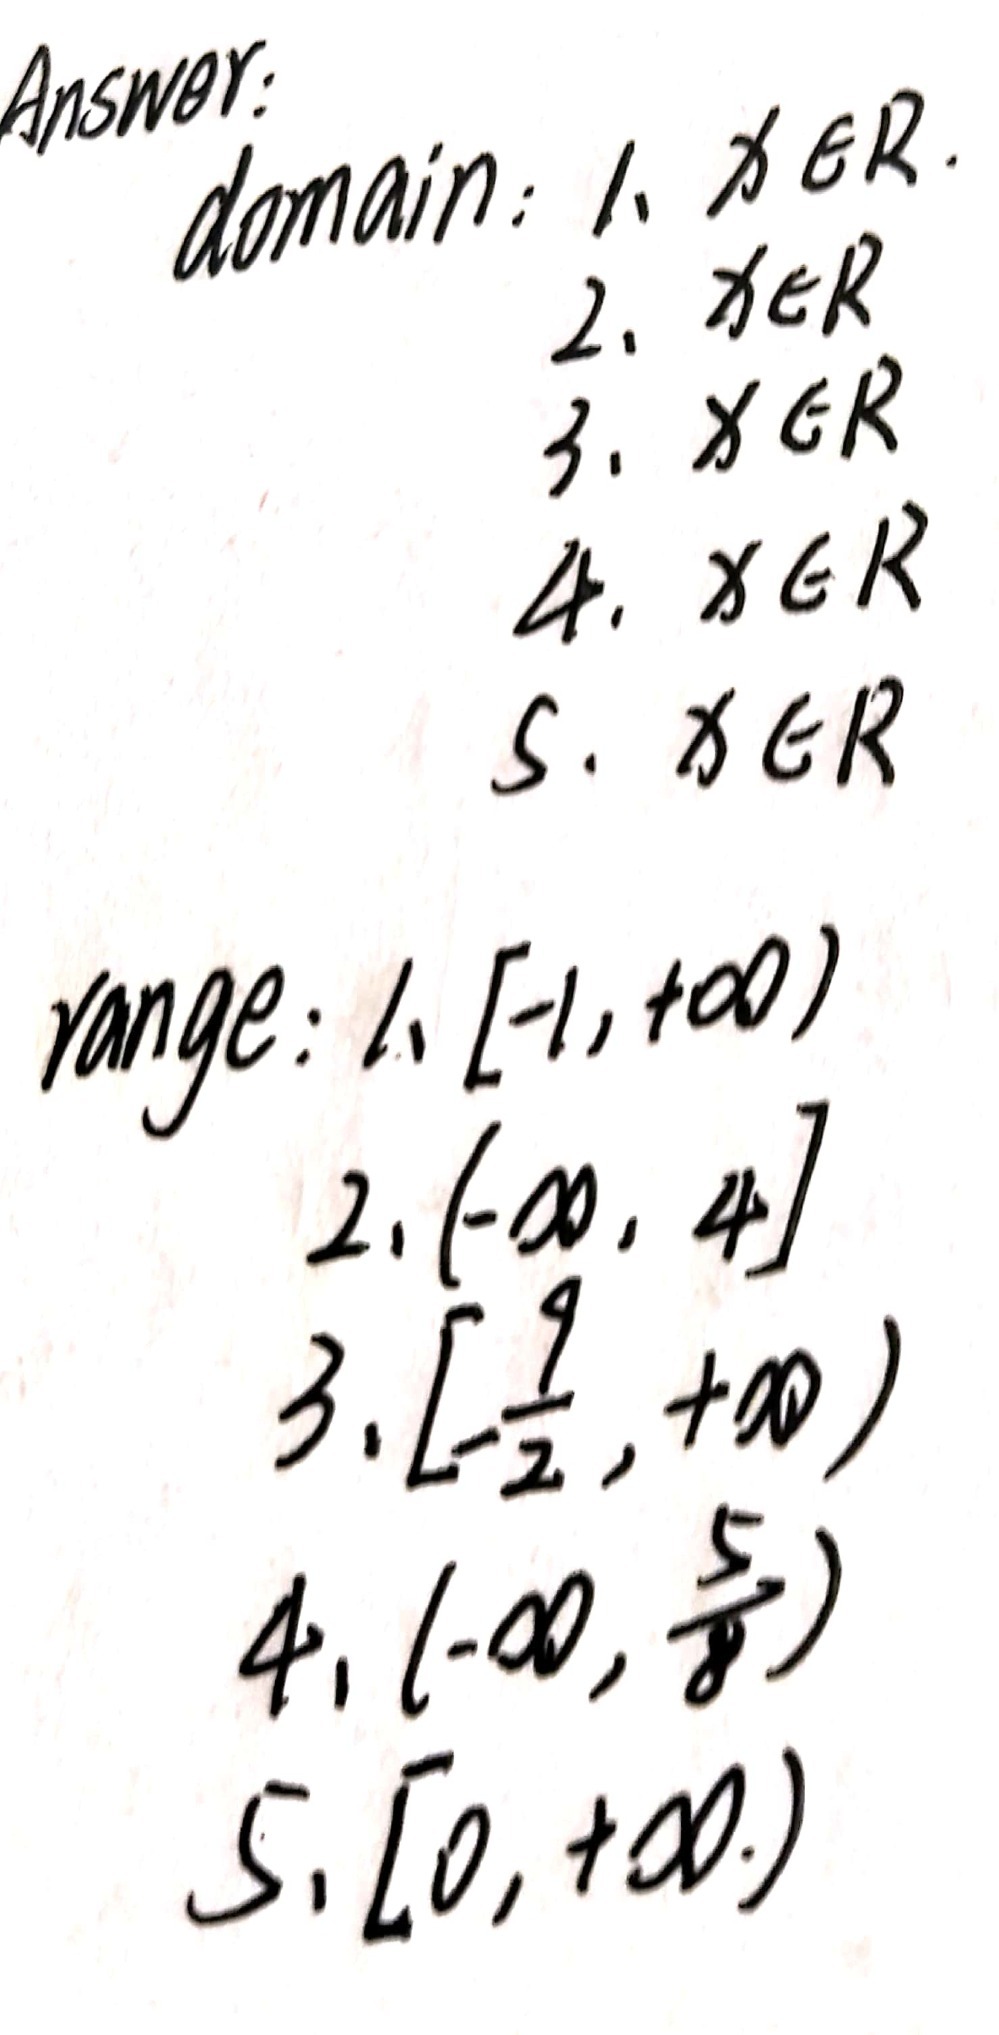 Answer:
domain: 1. x∈R.
2. x∈R
3. x∈R
4. x∈R
5. x∈R
range: 1. [-1, +∞)
2. (-∞, 4]
3. [-9/2, +∞)
4. (-∞, 5/8)
5. [0, +∞.)